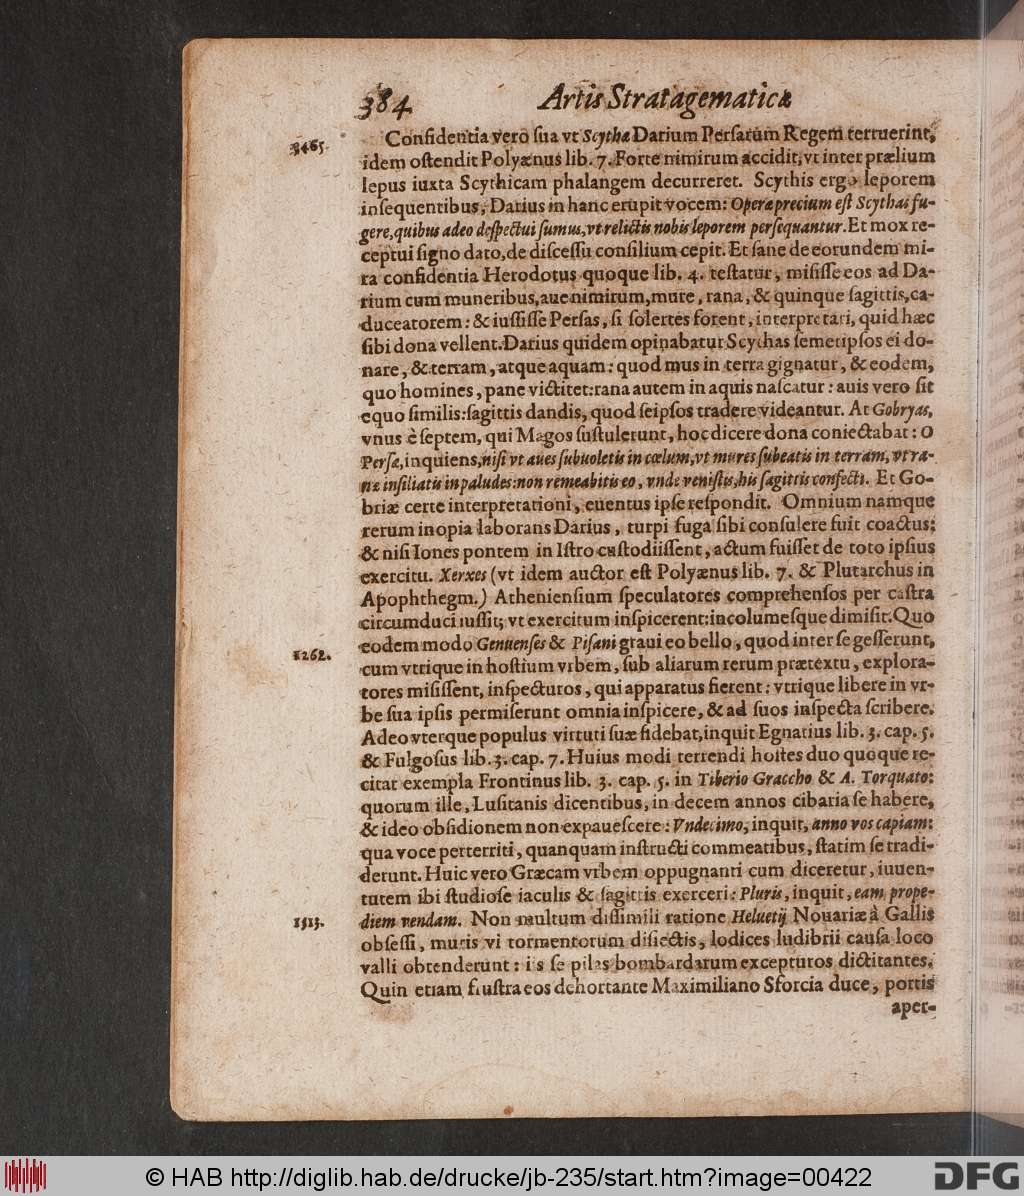 384 Artis Stratagematicæ
3465. Confidentia vero ſua vt Scythæ Darium Perſarum Regem terruerint,
idem oſtendit Polyænus lib. 7. Forte nimirum accidit, vt inter prælium
lepus iuxta Scythicam phalangem decurreret. Scythis ergo leporem
inſequentibus, Darius in hanc erupit vocem: Operæprecium eſt Scythas fu-
gere, quibus adeo deſpectui ſumus, vt relictis nobis leporem perſequantur. Et mox re-
ceptui ſigno dato, de diſceſſu conſilium cepit. Et ſane de eorundem mi-
ra confidentia Herodotus quoque lib. 4. teſtatur, miſiſſe eos ad Da-
rium cum muneribus, aue nimirum, mure, rana, & quinque ſagittis, ca-
duceatorem: & iuſſiſſe Perſas, ſi ſolertes forent, interpretari, quid hæc
ſibi dona vellent. Darius quidem opinabatur Scythas ſemetipſos ei do-
nare, & terram, atque aquam: quod mus in terra gignatur, & eodem,
quo homines, pane victitet: rana autem in aquis naſcatur: auis vero ſit
equo ſimilis: ſagittis dandis, quod ſeipſos tradere videantur. At Gobryas,
vnus è ſeptem, qui Magos ſuſtulerunt, hoc dicere dona coniectabat: O
Perſæ, inquiens, niſi vt aues ſubuoletis in cœlum, vt mures ſubeatis in terram, vt ra-
næ inſiliatis in paludes: non remeabitis eo, vnde veniſtis, his ſagittis confecti. Et Go-
briæ certe interpretationi, euentus ipſe reſpondit. Omnium namque
rerum inopia laborans Darius, turpi fuga ſibi conſulere fuit coactus:
& niſi Iones pontem in Iſtro cuſtodiiſſent, actum fuiſſet de toto ipſius
exercitu. Xerxes (vt idem auctor eſt Polyænus lib. 7. & Plutarchus in
Apophthegm.) Athenienſium ſpeculatores comprehenſos per caſtra
circumduci iuſſit; vt exercitum inſpicerent: incolumeſque dimiſit. Quo
eodem modo Genuenſes & Piſani graui eo bello, quod inter ſe geſſerunt,
1262. cum vtrique in hoſtium vrbem, ſub aliarum rerum prætextu, explora-
tores miſiſſent, inſpecturos, qui apparatus fierent: vtrique libere in vr-
be ſua ipſis permiſerunt omnia inſpicere, & ad ſuos inſpecta ſcribere.
Adeo vterque populus virtuti ſuæ fidebat, inquit Egnatius lib. 3. cap. 5.
& Fulgoſus lib. 3. cap. 7. Huius modi terrendi hoſtes duo quoque re-
citat exempla Frontinus lib. 3. cap. 5. in Tiberio Graccho & A. Torquato:
quorum ille, Luſitanis dicentibus, in decem annos cibaria ſe habere,
& ideo obſidionem non expaueſcere: Vndecimo, inquit, anno vos capiam:
qua voce perterriti, quanquam inſtructi commeatibus, ſtatim ſe tradi-
derunt. Huic vero Græcam vrbem oppugnanti cum diceretur, iuuen-
tutem ibi ſtudioſe iaculis & ſagittis exerceri: Pluris, inquit, eam prope-
1513. diem vendam. Non multum diſſimili ratione Heluetij Nouariæ à Gallis
obſeſſi, muris vi tormentorum diſiectis, lodices ludibrii cauſa loco
valli obtenderunt: iis ſe pilas bombardarum excepturos dictitantes.
Quin etiam fruſtra eos dehortante Maximiliano Sforcia duce, portis
aper-
© HAB http://diglib.hab.de/drucke/jb-235/start.htm?image=00422 DFG